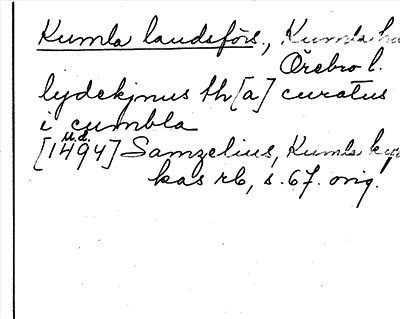 Kumla landsförs., Kumla hd
Örebro l.
lydekjnus th[a] curatus
i cumbla
u.d.
[1494] Samzelius, Kumla kyr
kas rb, s. 67. orig.